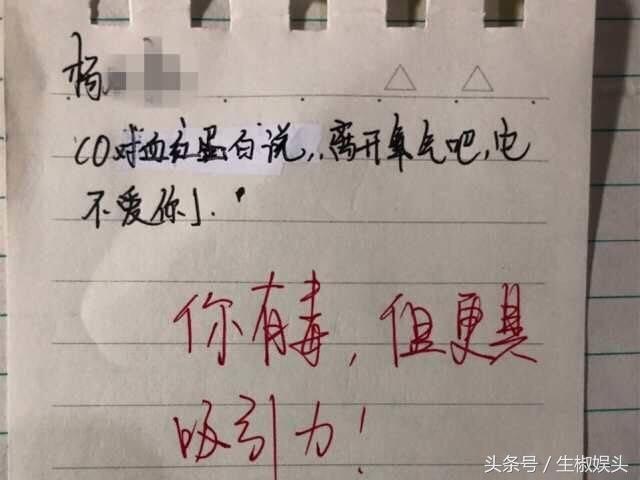 杨
CO对血红蛋白说,离开氧气吧,它
不爱你」.
你有毒,但更具
吸引力!
头条号 / 生椒娱头